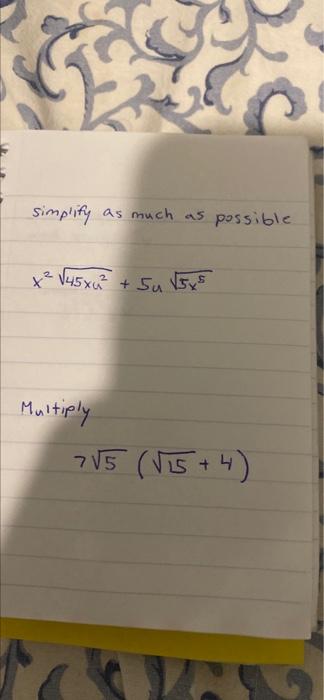 simplify as much as possible
x² √45xu² + 5u √5x⁵
Multiply
7√5 (√15 + 4)